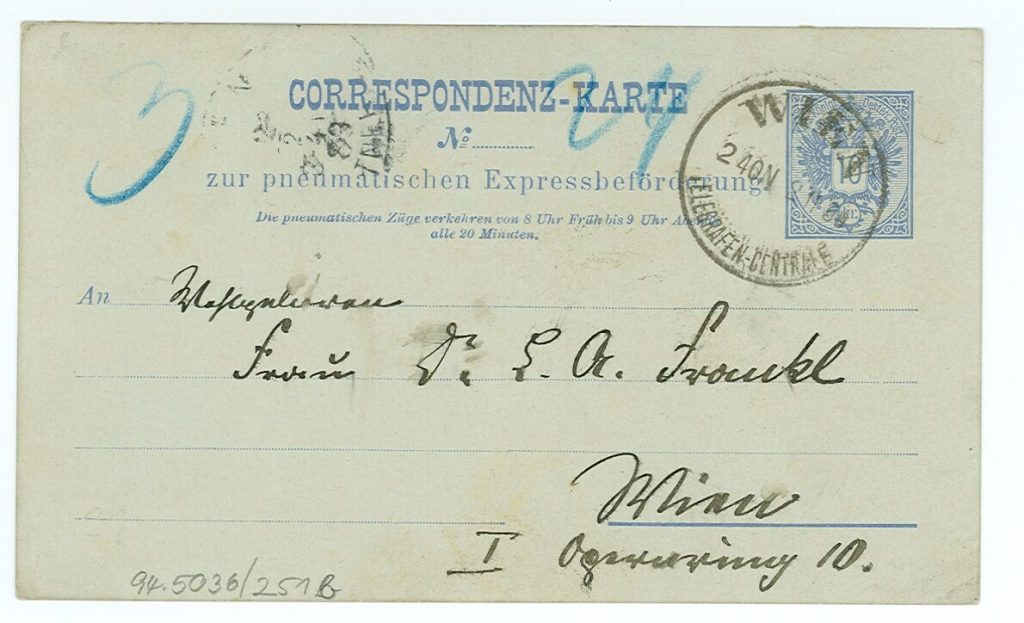 3
24
CORRESPONDENZ-KARTE
No.
zur pneumatischen Expressbeförderung.
Die pneumatischen Züge verkehren von 8 Uhr Früh bis 9 Uhr
alle 20 Minuten.
WIEN
TELEGRAFEN-CENTRALE
10
An Wohlgeboren
Frau Dr. L. A. Frankl
Wien
I Opernring 10.
94.5036/251